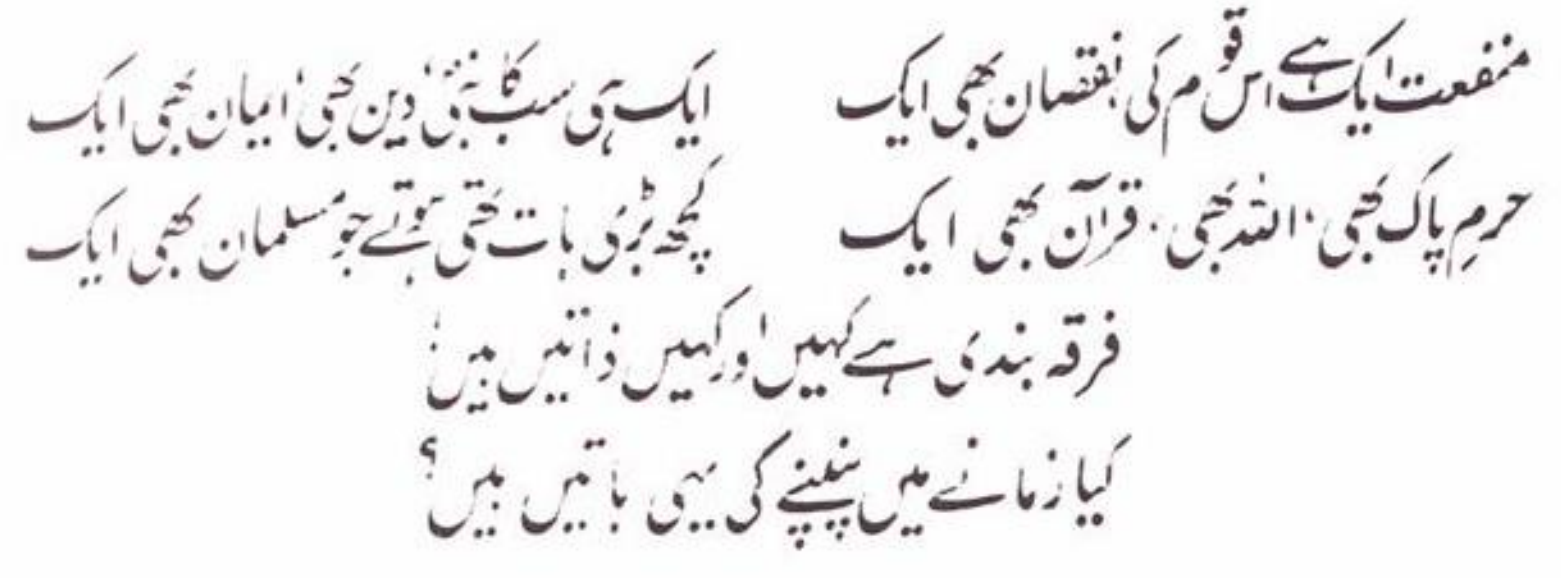 منفعت ایک ہے اس قوم کی، نقصان بھی ایک
ایک ہی سب کا نبیؐ، دین بھی، ایمان بھی ایک
حرمِ پاک بھی، اللہ بھی، قرآن بھی ایک
کچھ بڑی بات تھی ہوتے جو مسلمان بھی ایک
فرقہ بندی ہے کہیں اور کہیں ذاتیں ہیں!
کیا زمانے میں پنپنے کی یہی باتیں ہیں؟